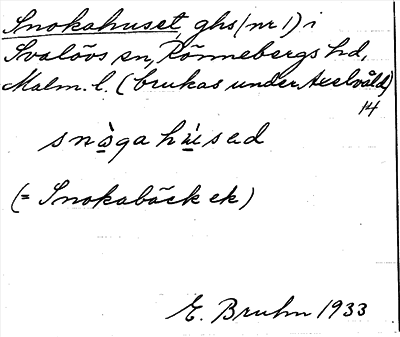 Snokahuset, ghs (nr 1) i
Svalövs sn, Rönnebergs hd,
Malm. l. (brukas under Axelvåld)
14
snò̱gahù̱sad
(= Snokabäck ek)
E. Bruhn 1933